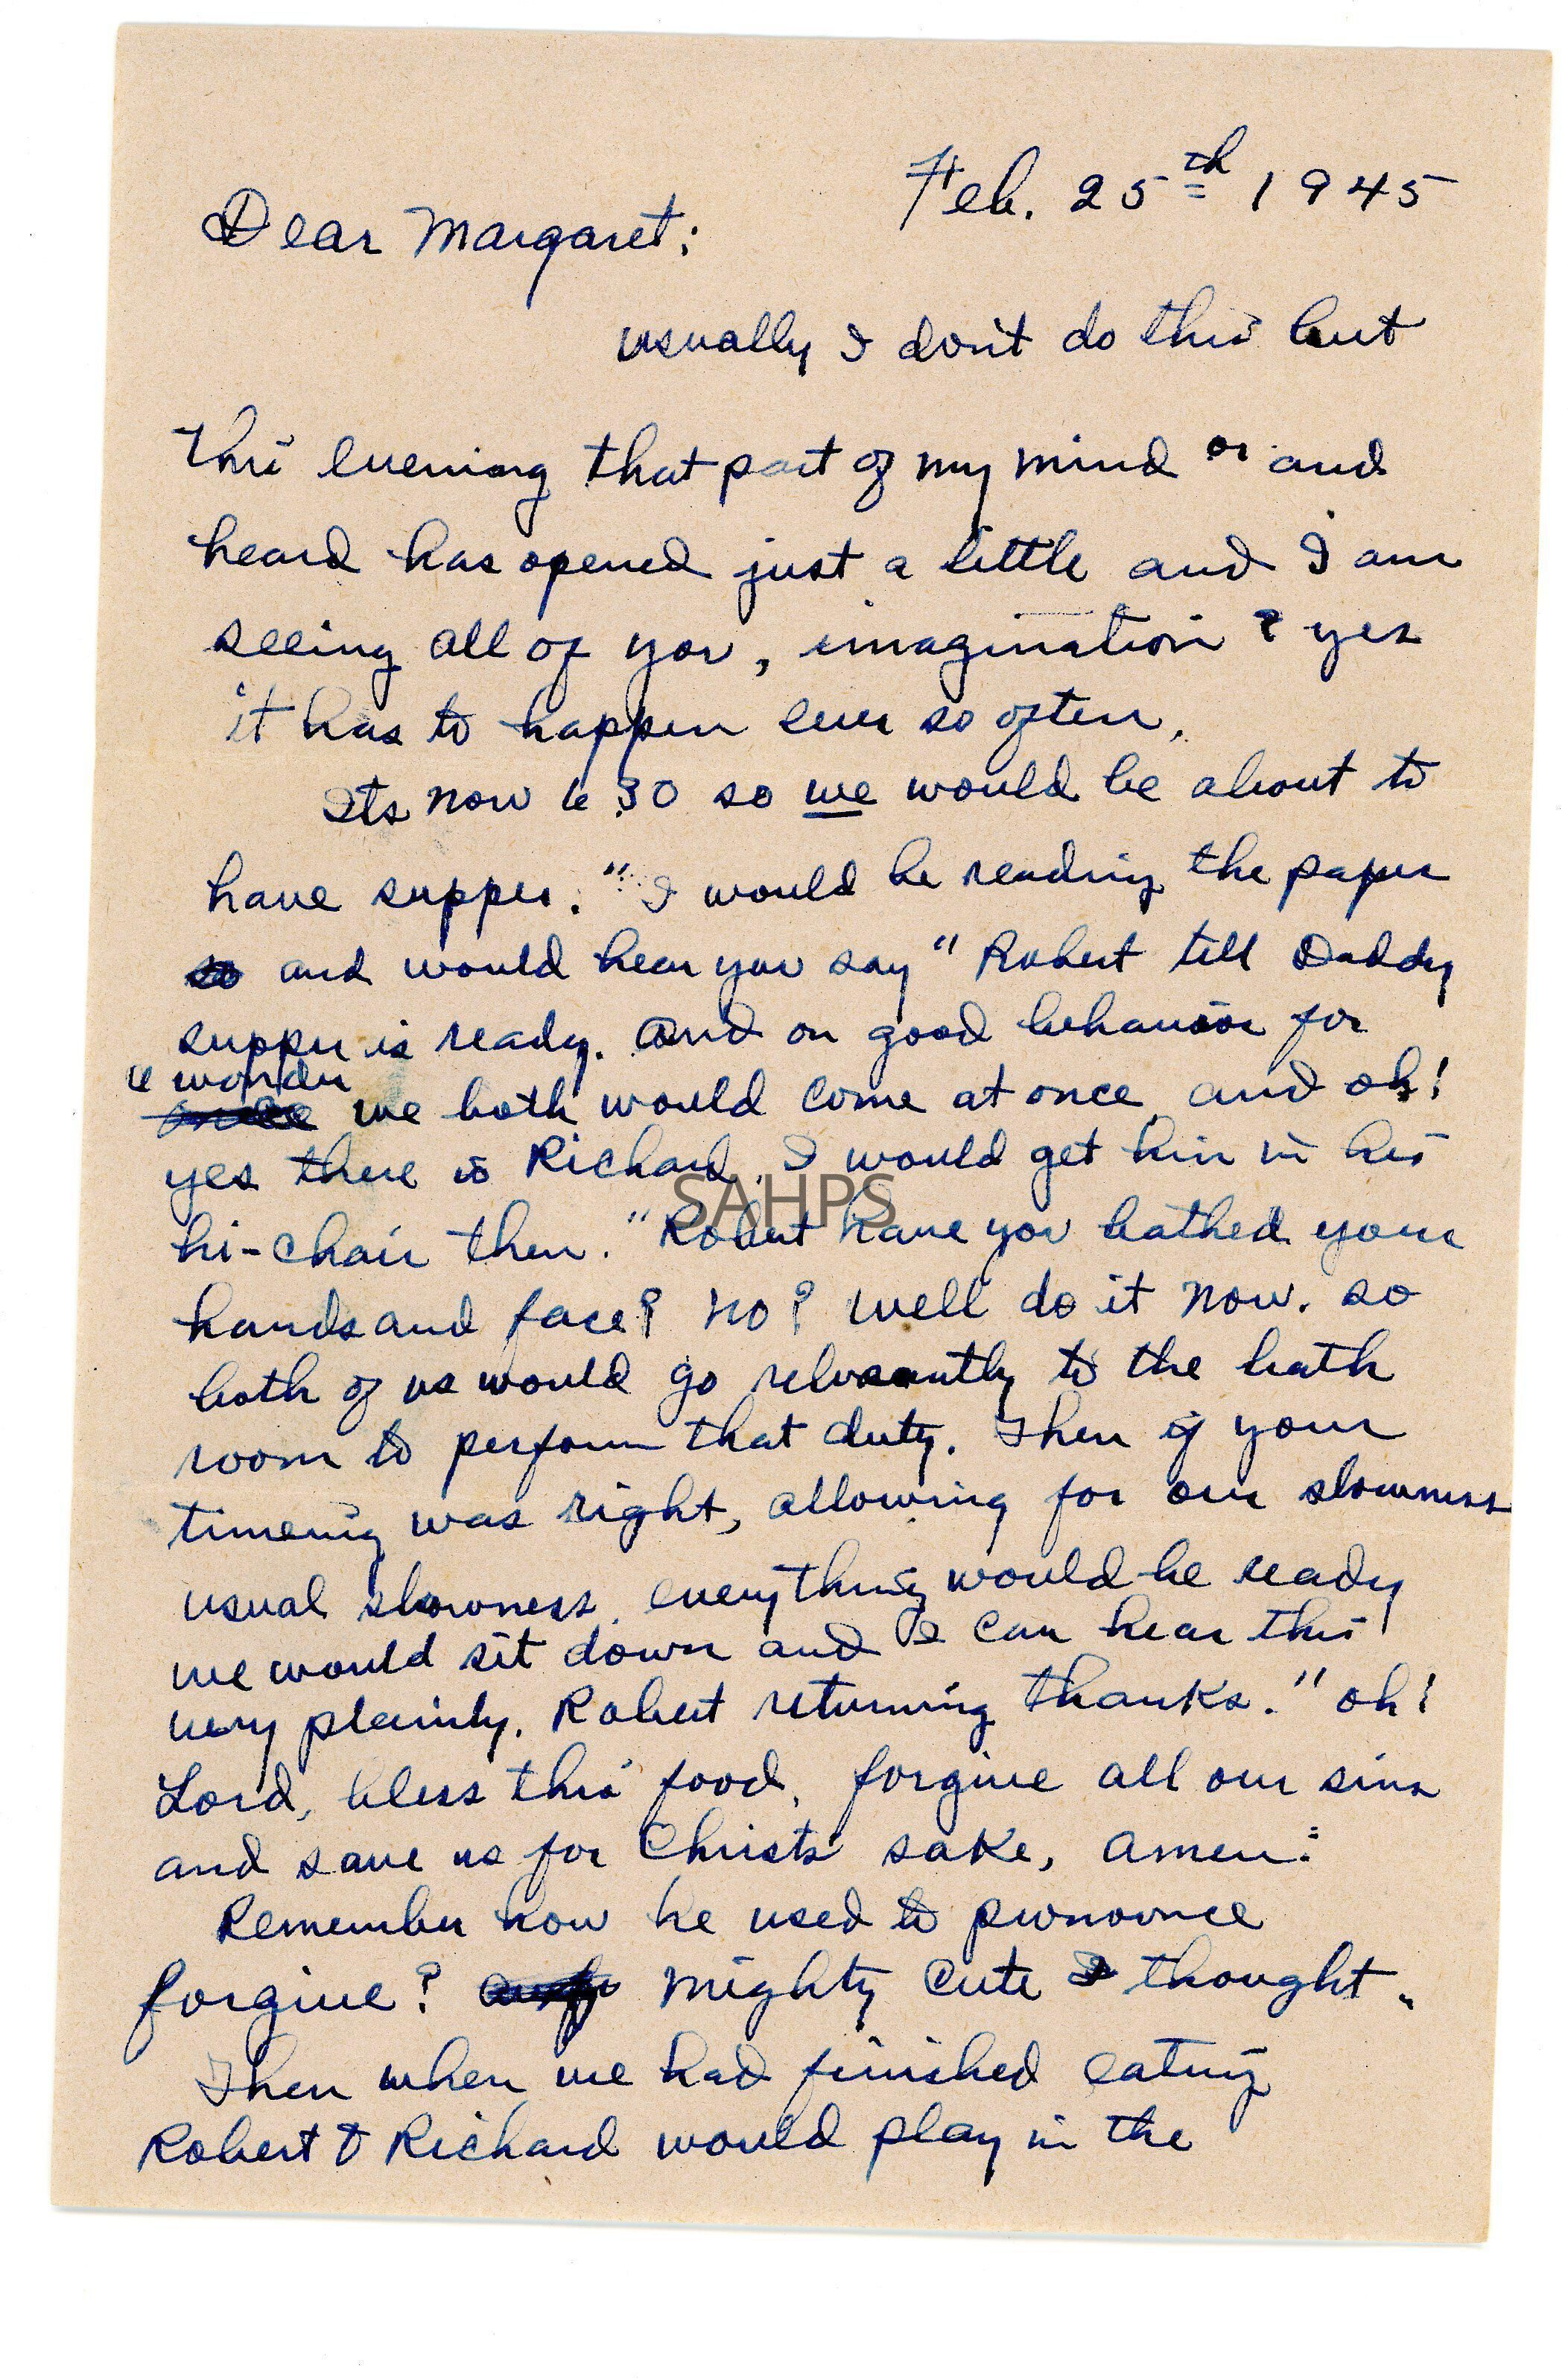 Feb. 25th 1945
Dear Margaret;
usually I don't do this but
this evening that part of my mind or and
heard has opened just a little and I am
seeing all of you, imagination? yes
it has to happen ever so often.
Its now 6:30 so we would be about to
have supper. " I would be reading the paper
so and would hear you say " Robert tell Daddy
supper is ready. And on good behavior for
a wonder
once we both would come at once, and oh!
yes there is Richard. I would get him in his
SAHPS
hi-chair then. "Robert have you bathed your
hands and face? no? well do it now. so
both of us would go to the bath
room to perform that duty. Then if your
timeing was right, allowing for our slowness
usual slowness, everything would be ready
we would sit down and I can hear this
very plainly. Robert returning thanks. " oh!
Lord, bless this food, forgive all our sins
and save us for Christs sake, amen:
Remember how he used to pronounce
forgive? mighty cute I thought.
Then when we had finished eating
Robert & Richard would play in the